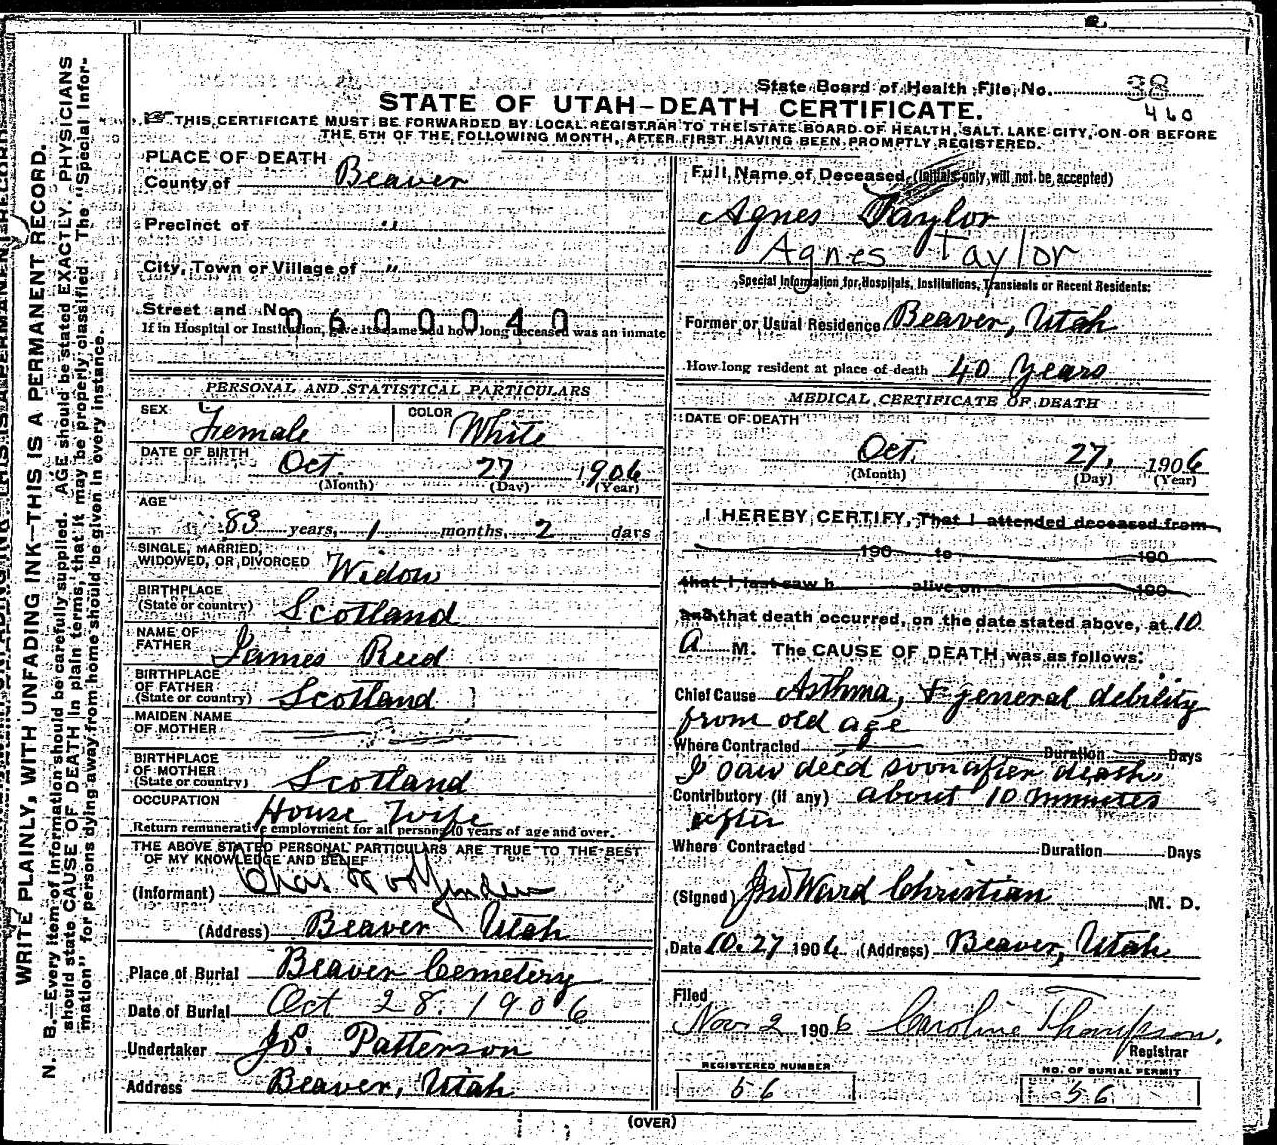 State Board of Health File No. 38
460
STATE OF UTAH-DEATH CERTIFICATE.
THIS CERTIFICATE MUST BE FORWARDED BY LOCAL REGISTRAR TO THE STATE BOARD OF HEALTH, SALT LAKE CITY, ON OR BEFORE
THE 5TH OF THE FOLLOWING MONTH, AFTER FIRST HAVING BEEN PROMPTLY REGISTERED.
WRITE PLAINLY, WITH UNFADING INK—THIS IS A PERMANENT RECORD.
N. B.—Every item of information should be carefully supplied. AGE should be stated EXACTLY. PHYSICIANS
should state CAUSE OF DEATH in plain terms, that it may be properly classified. The "Special Infor-
mation" for persons dying away from home should be given in every instance.
PLACE OF DEATH
County of Beaver
Precinct of "
City, Town or Village of "
Street and No.
0600040
If in Hospital or Institution, give its name and how long deceased was an inmate
PERSONAL AND STATISTICAL PARTICULARS
SEX Female COLOR White
DATE OF BIRTH Oct. 27 1906
(Month) (Day) (Year)
AGE
83 years, 1 months, 2 days
SINGLE, MARRIED,
WIDOWED, OR DIVORCED Widow
BIRTHPLACE
(State or country) Scotland
NAME OF
FATHER James Reid
BIRTHPLACE
OF FATHER
(State or country) Scotland
MAIDEN NAME
OF MOTHER
BIRTHPLACE
OF MOTHER
(State or country) Scotland
OCCUPATION House Wife
Return remunerative employment for all persons 10 years of age and over.
THE ABOVE STATED PERSONAL PARTICULARS ARE TRUE TO THE BEST
OF MY KNOWLEDGE AND BELIEF
(Informant) Chas Woolfenden
(Address) Beaver Utah
Place of Burial Beaver Cemetery
Date of Burial Oct 28. 1906
Undertaker Jos. Patterson
Address Beaver, Utah
Full Name of Deceased (Initials only will not be accepted)
Agnes Taylor
Agnes Taylor
Special Information for Hospitals, Institutions, Transients or Recent Residents:
Former or Usual Residence Beaver, Utah
How long resident at place of death 40 years
MEDICAL CERTIFICATE OF DEATH
DATE OF DEATH
Oct. 27, 1906
(Month) (Day) (Year)
I HEREBY CERTIFY, That I attended deceased from
190 to 190
that I last saw h alive on 190
and that death occurred, on the date stated above, at 10
A M. The CAUSE OF DEATH was as follows:
Chief Cause Asthma, & general debility
from old age
Where Contracted Duration Days
I saw dec'd soon after death,
Contributory (if any) about 10 minutes
after
Where Contracted Duration Days
(Signed) Jno Ward Christian M. D.
Date 10.27 1906 (Address) Beaver, Utah
Filed
Nov. 2 1906 Caroline Thompson,
Registrar
REGISTERED NUMBER
56
NO. OF BURIAL PERMIT
56
(OVER)